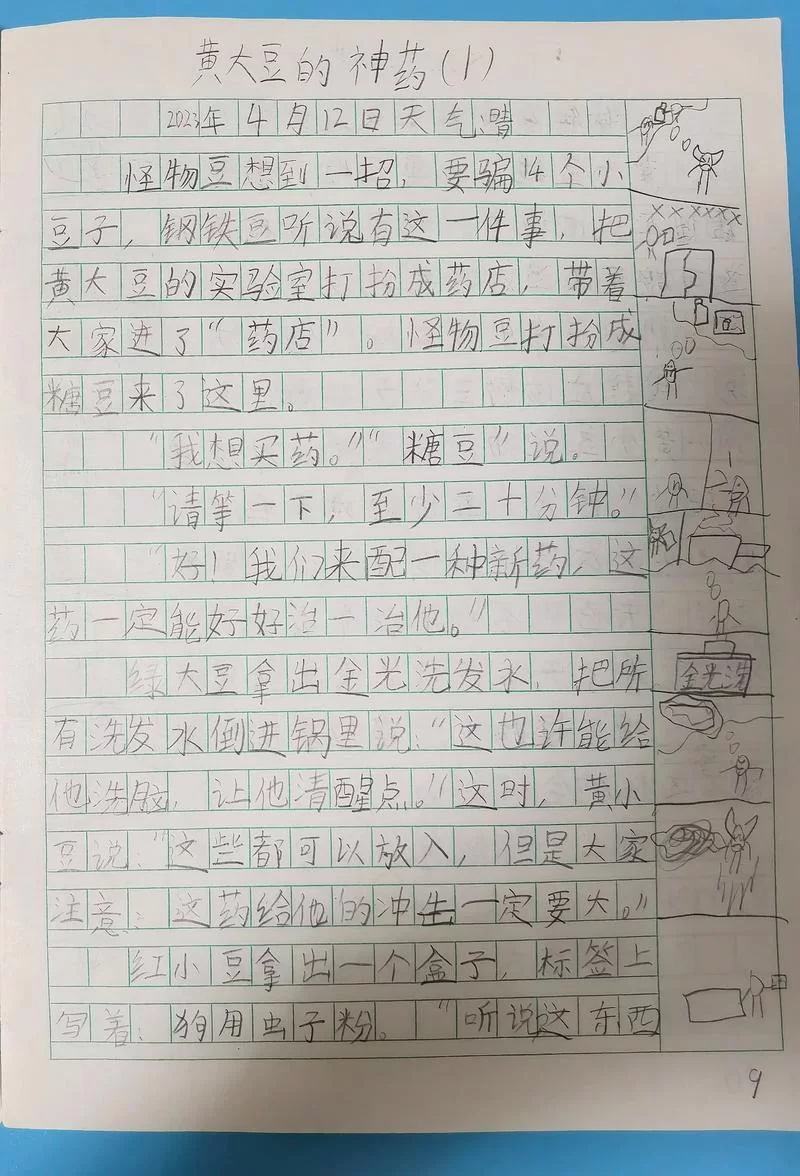 黄大豆的神药(1)
2023年4月12日天气:晴
怪物豆想到一招，要骗14个小
豆子，钢铁豆听说有这一件事，把
黄大豆的实验室打扮成药店，带着
大家进了“药店”。怪物豆打扮成
糖豆来了这里。
“我想买药。”“糖豆”说。
“请等一下，至少二十分钟。”
“好！我们来配一种新药，这
药一定能好好治一治他。”
绿大豆拿出金光洗发水，把所
有洗发水倒进锅里说：“这也许能给
他洗脑，让他清醒点。”这时，黄小
豆说：“这些都可以放入，但是大家
注意：这药给他的冲击一定要大。”
红小豆拿出一个盒子，标签上
写着：狗用虫子粉。“听说这东西
金光洗
9